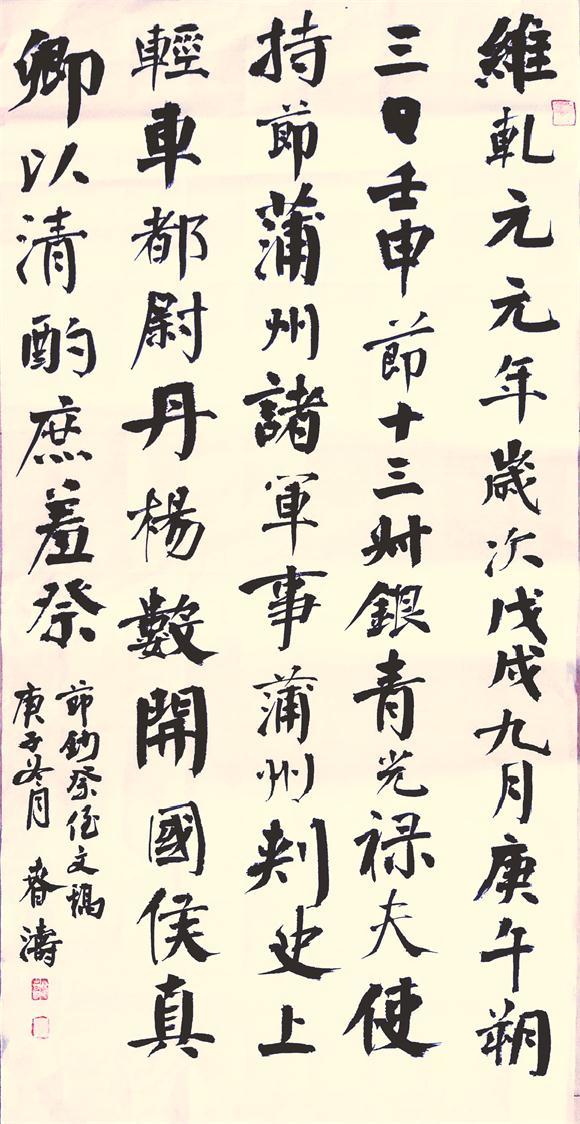 維軋元元年歲次戊戌九月庚午朔
三日壬申節十三叔銀青光禄夫使
持節蒲州諸軍事蒲州刾史上
輕車都尉丹楊數開國侯真
卿以清酌庶羞祭
節鈔祭侄文稿
庚子冬月 春濤